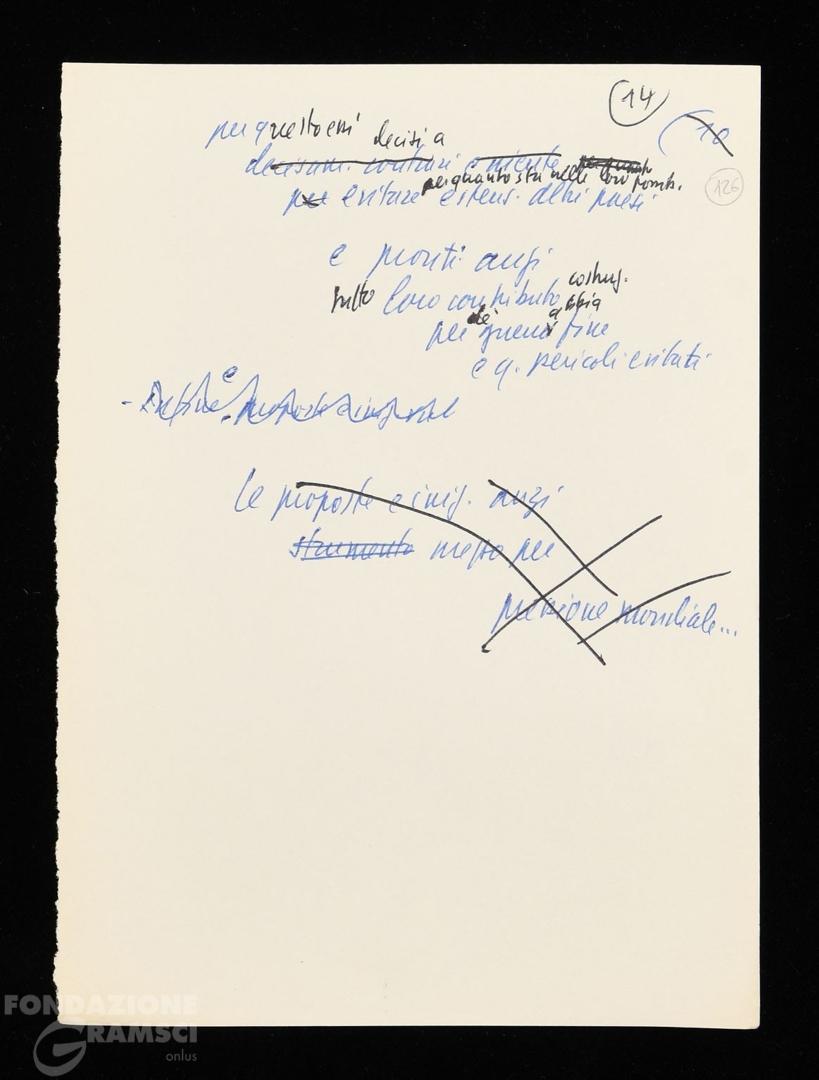 14
10
126
per questo essi decisi a
decisam. contrari e niente
per quanto sta nelle loro possib.
per evitare estens. altri paesi
e pronti anzi
tutto loro contributo costrutt.
per
fine
e q. pericoli evitati
- Infine è proposte e iniz.
le proposte e iniz. anzi
strumento mezzo per
pressione mondiale...
FONDAZIONE
GRAMSCI
onlus